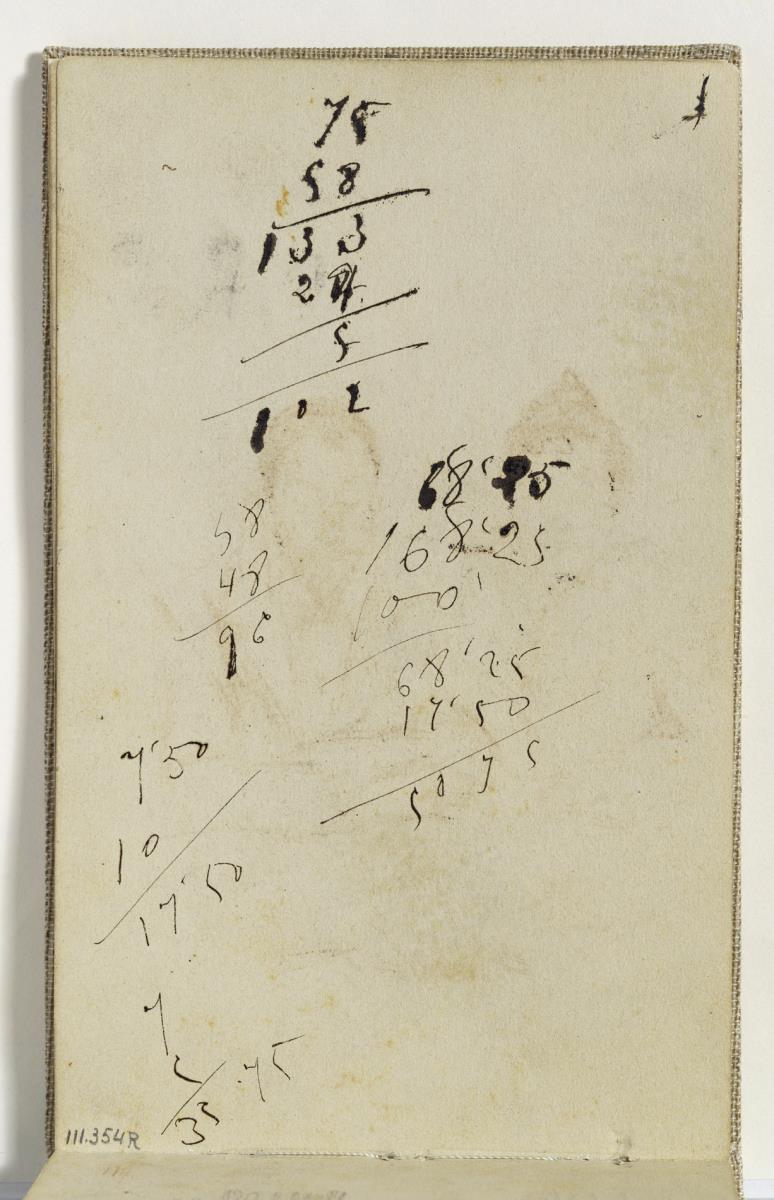 75
58
133
2
5
102
68'
168'25
100'
68'25
17'50
5075
58
48
96
7'50
10
17'50
7
5
75
35
111.354R